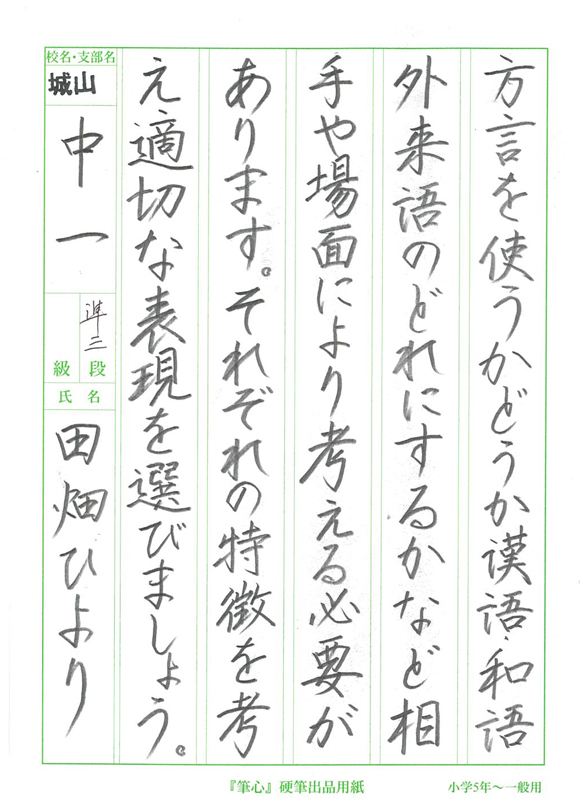 方言を使うかどうか漢語・和語
外来語のどれにするかなど相
手や場面により考える必要が
あります。それぞれの特徴を考
え適切な表現を選びましょう。
校名・支部名
城山
中一
準三
段
級
氏名
田畑ひより
『筆心』硬筆出品用紙
小学5年〜一般用